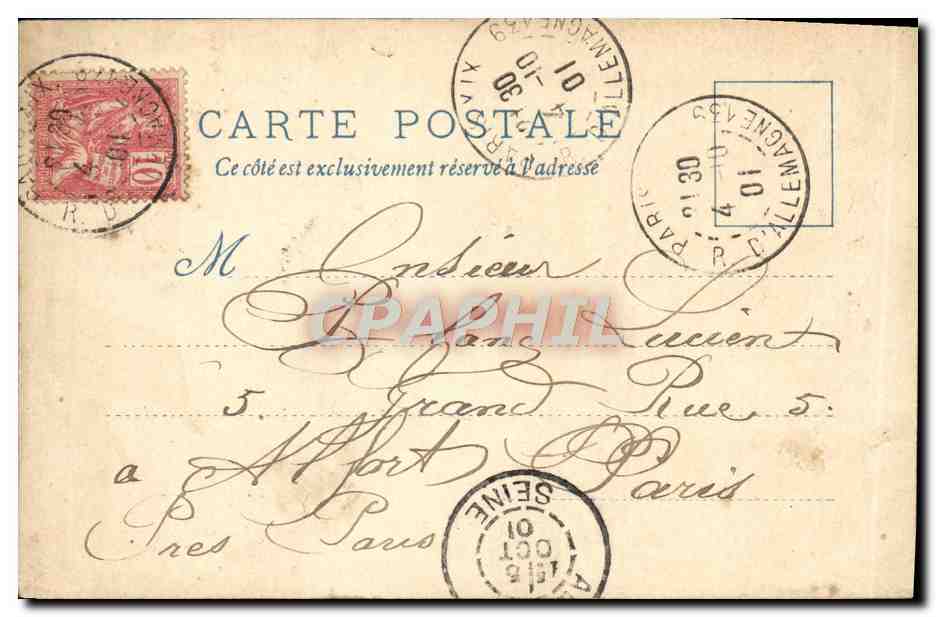 CARTE POSTALE
Ce côté est exclusivement réservé à l'adresse
PARIS
R. D'ALLEMAGNE 139
21 30
4 -10
01
PARIS XIX
R. D'ALLEMAGNE 139
21 30
4 -10
01
10
R. D
Monsieur
Lucien
5. Grand Rue, 5.
a Alfort Paris
Pres Paris
CPAPHIL
SEINE
1E 5
OCT
01